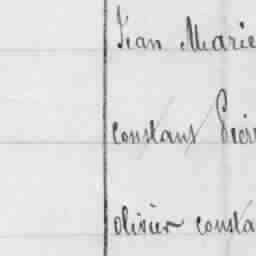 Jean Marie
constant
olivier consta